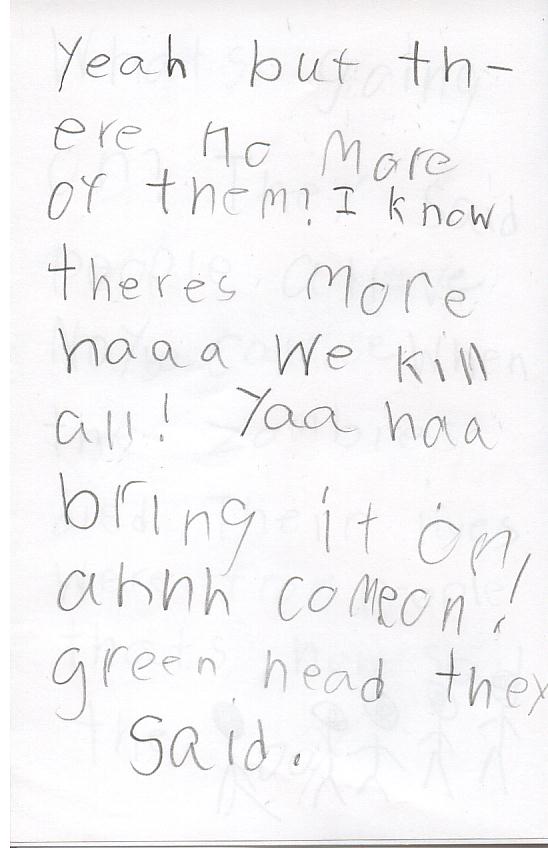 Yeah but th-
ere no more
of them? I know
theres more
haaa We kill
all! Yaa haa
bring it on,
ahhh comeon!
green head they
said.